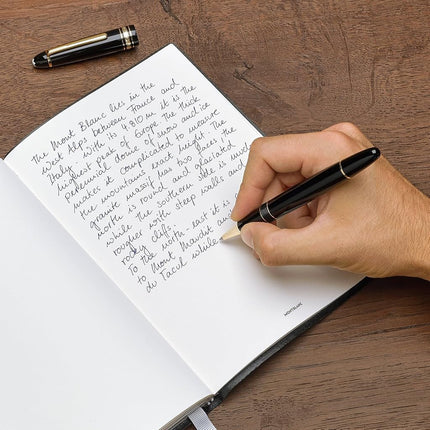 The Mont Blanc lies in the
West Alps between France and
Italy. With its 4 810 m it is the
highest peak of Europe. The thick
perennial dome of snow and ice
makes it complicated to measure
the mountains exact height. The
granite massif has two faces, the
north is round and glaciated
while the southern side is much
rougher with steep walls and
rocky cliffs.
To the north-east it is
to Mont Maudit an
du Tacul while
MONTBLANC